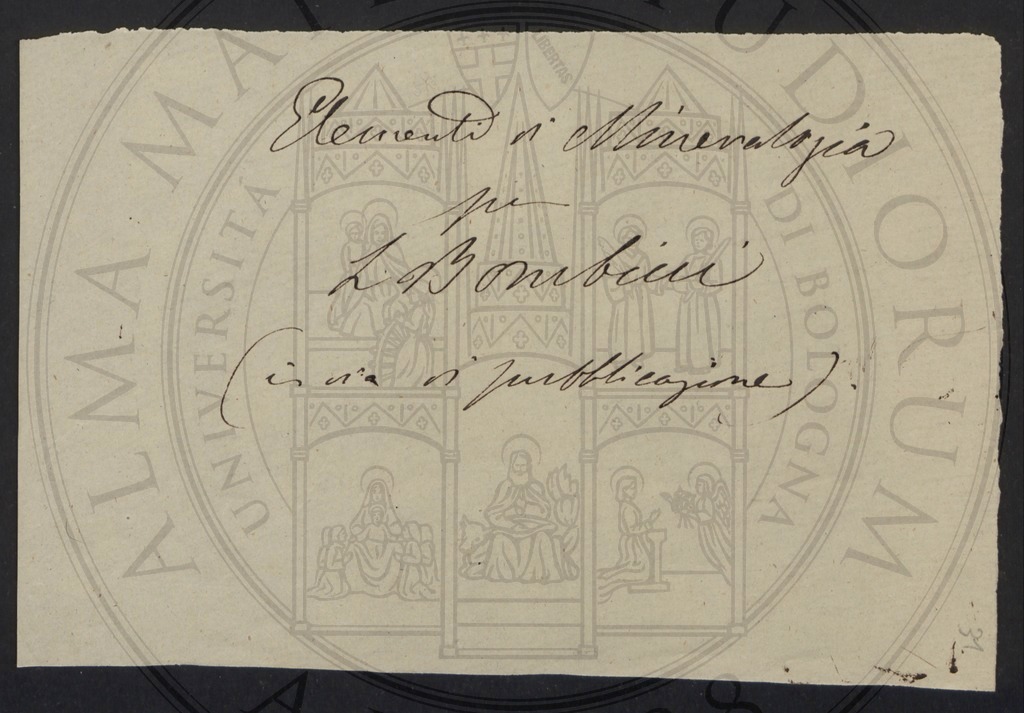 Elementi di Mineralogia
per
L Bombicci
(in via di pubblicazione).
31.
ALMA MATER STUDIORUM
UNIVERSITÀ DI BOLOGNA
LIBERTAS